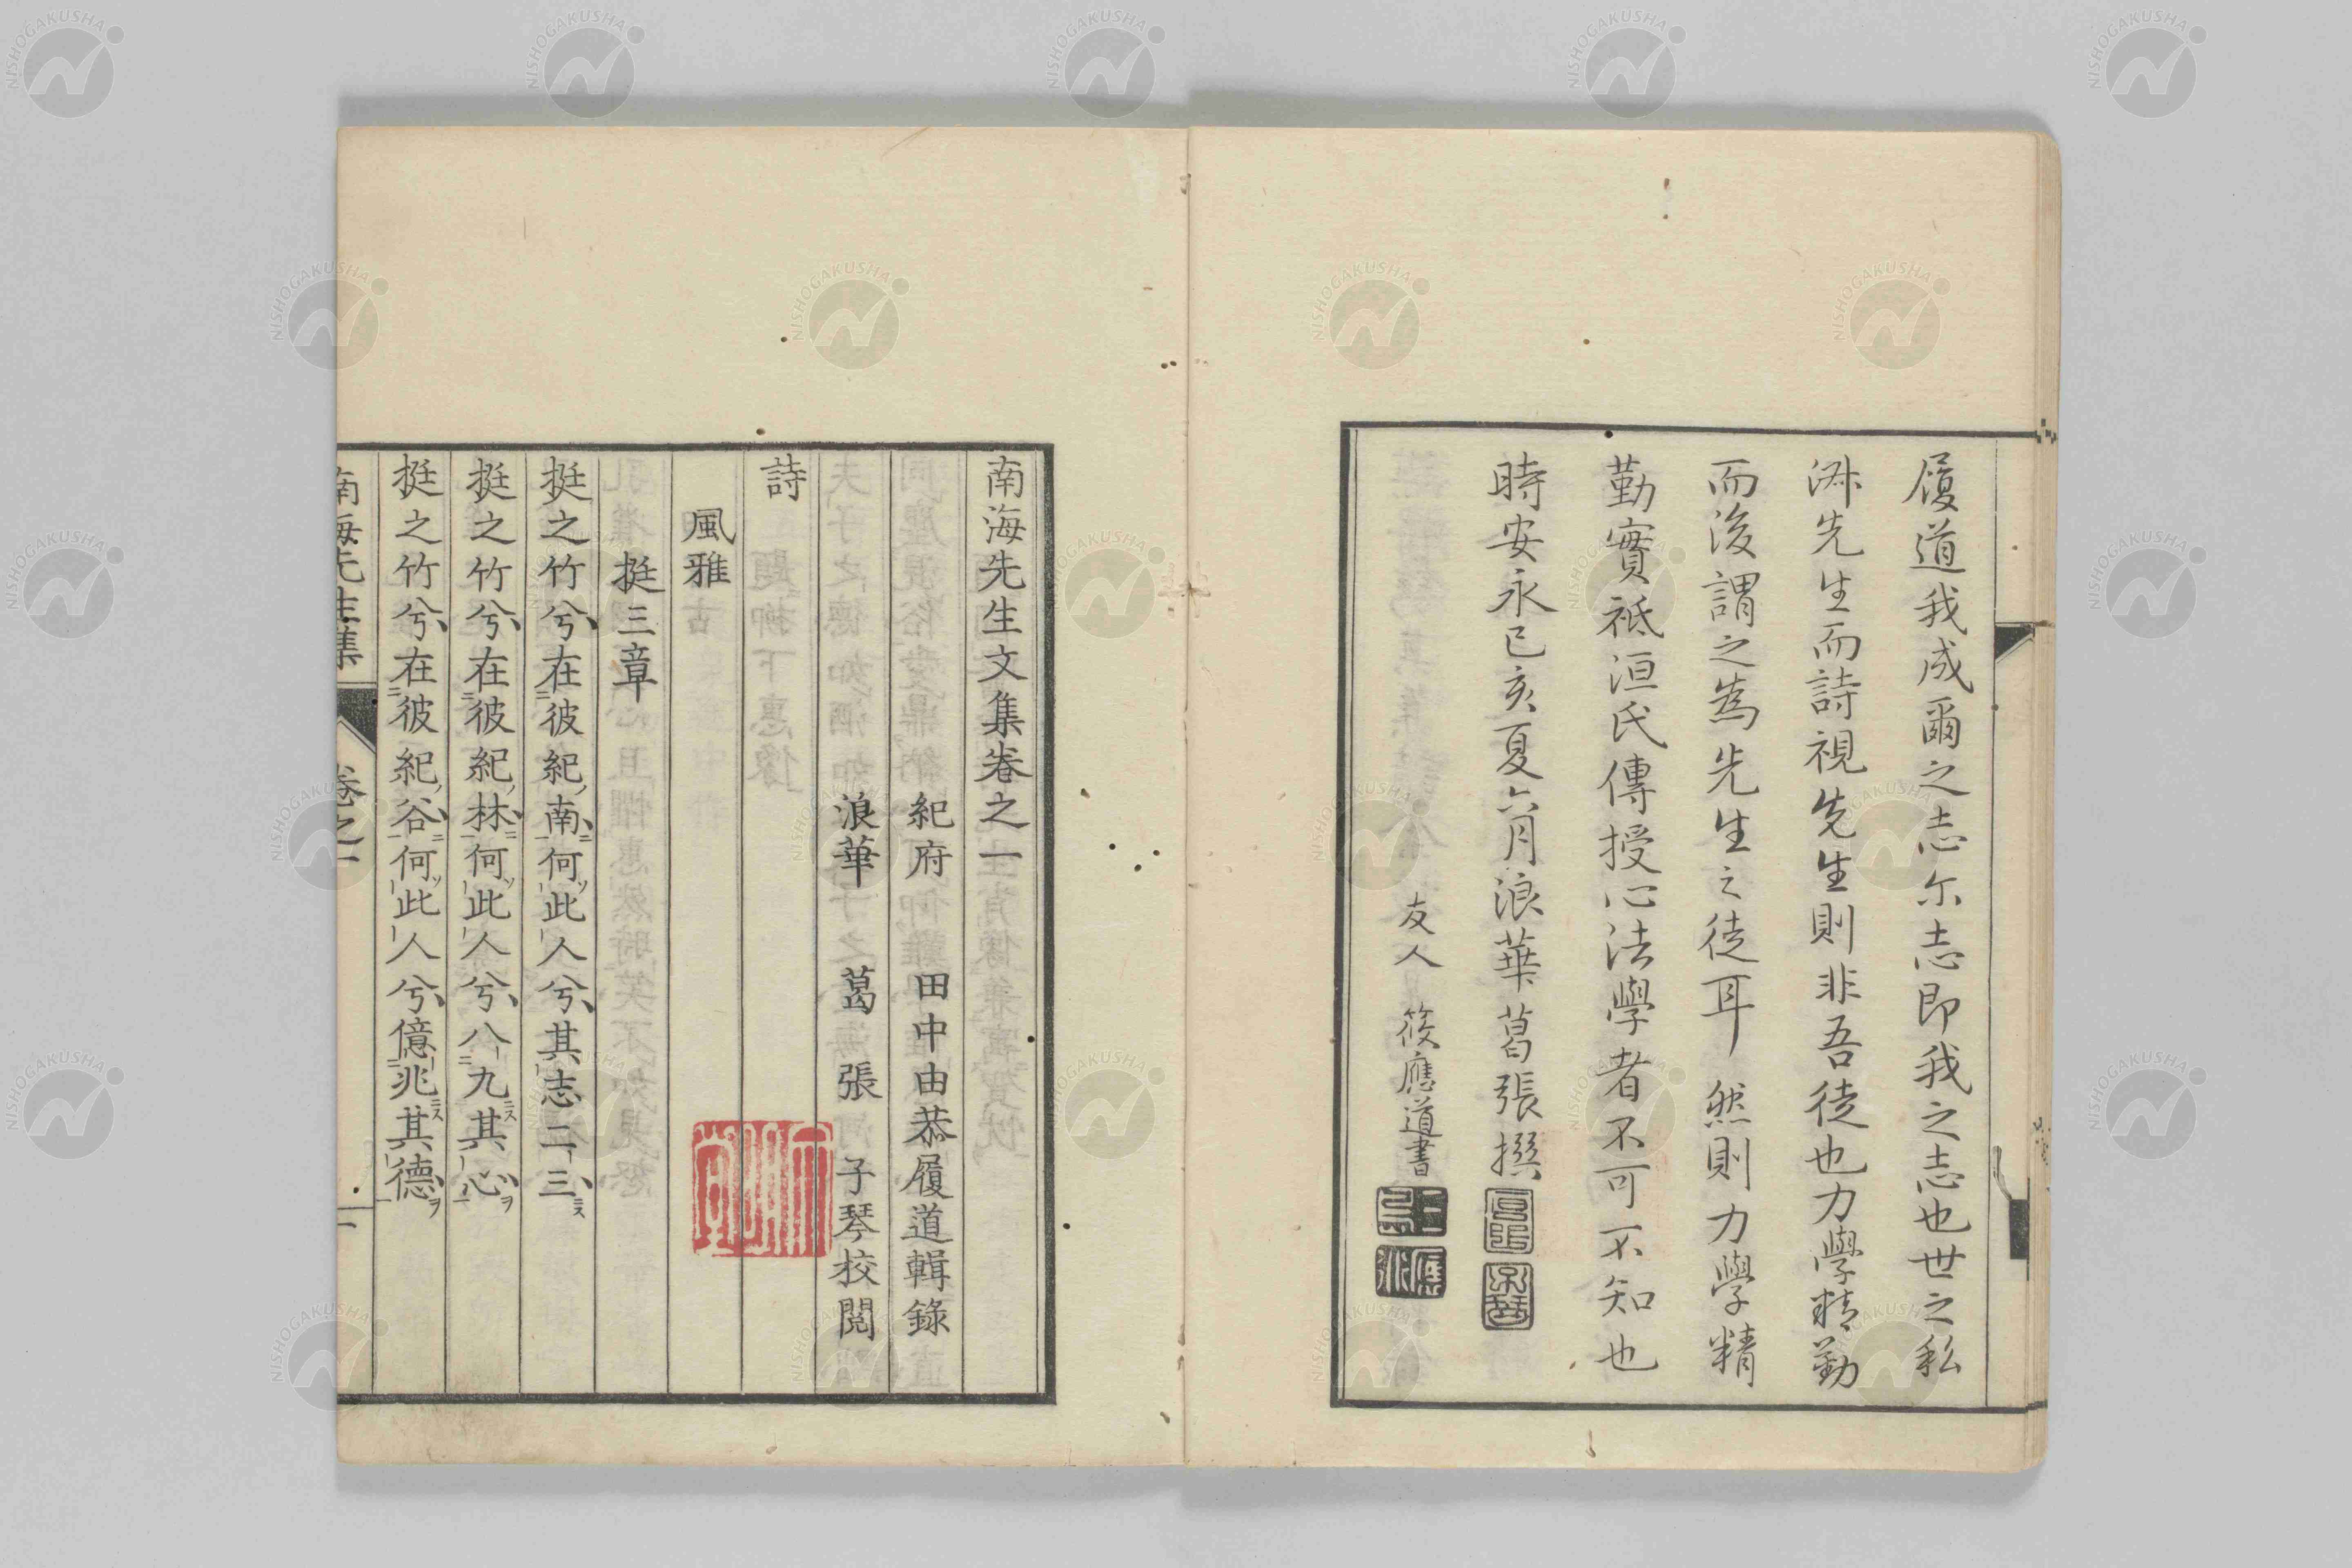 履道我成爾之志尓志即我之志也世之私
淋先生而詩視先生則非吾徒也力學精勤
而後謂之為先生之徒耳然則力學精
勤實祗洹氏傳授心法學者不可不知也
時安永己亥夏六月浪華葛張撰
友人 筱應道書
南海先生文集卷之一
紀府 田中由恭履道輯錄
浪華 葛張子琴挍閲
詩
風雅
挺三章
挺之竹兮在彼紀南何此人兮其志二三
挺之竹兮在彼紀林何此人兮八九其心
挺之竹兮在彼紀谷何此人兮億兆其德
南海先生集 卷之一 一
NISHOGAKUSHA